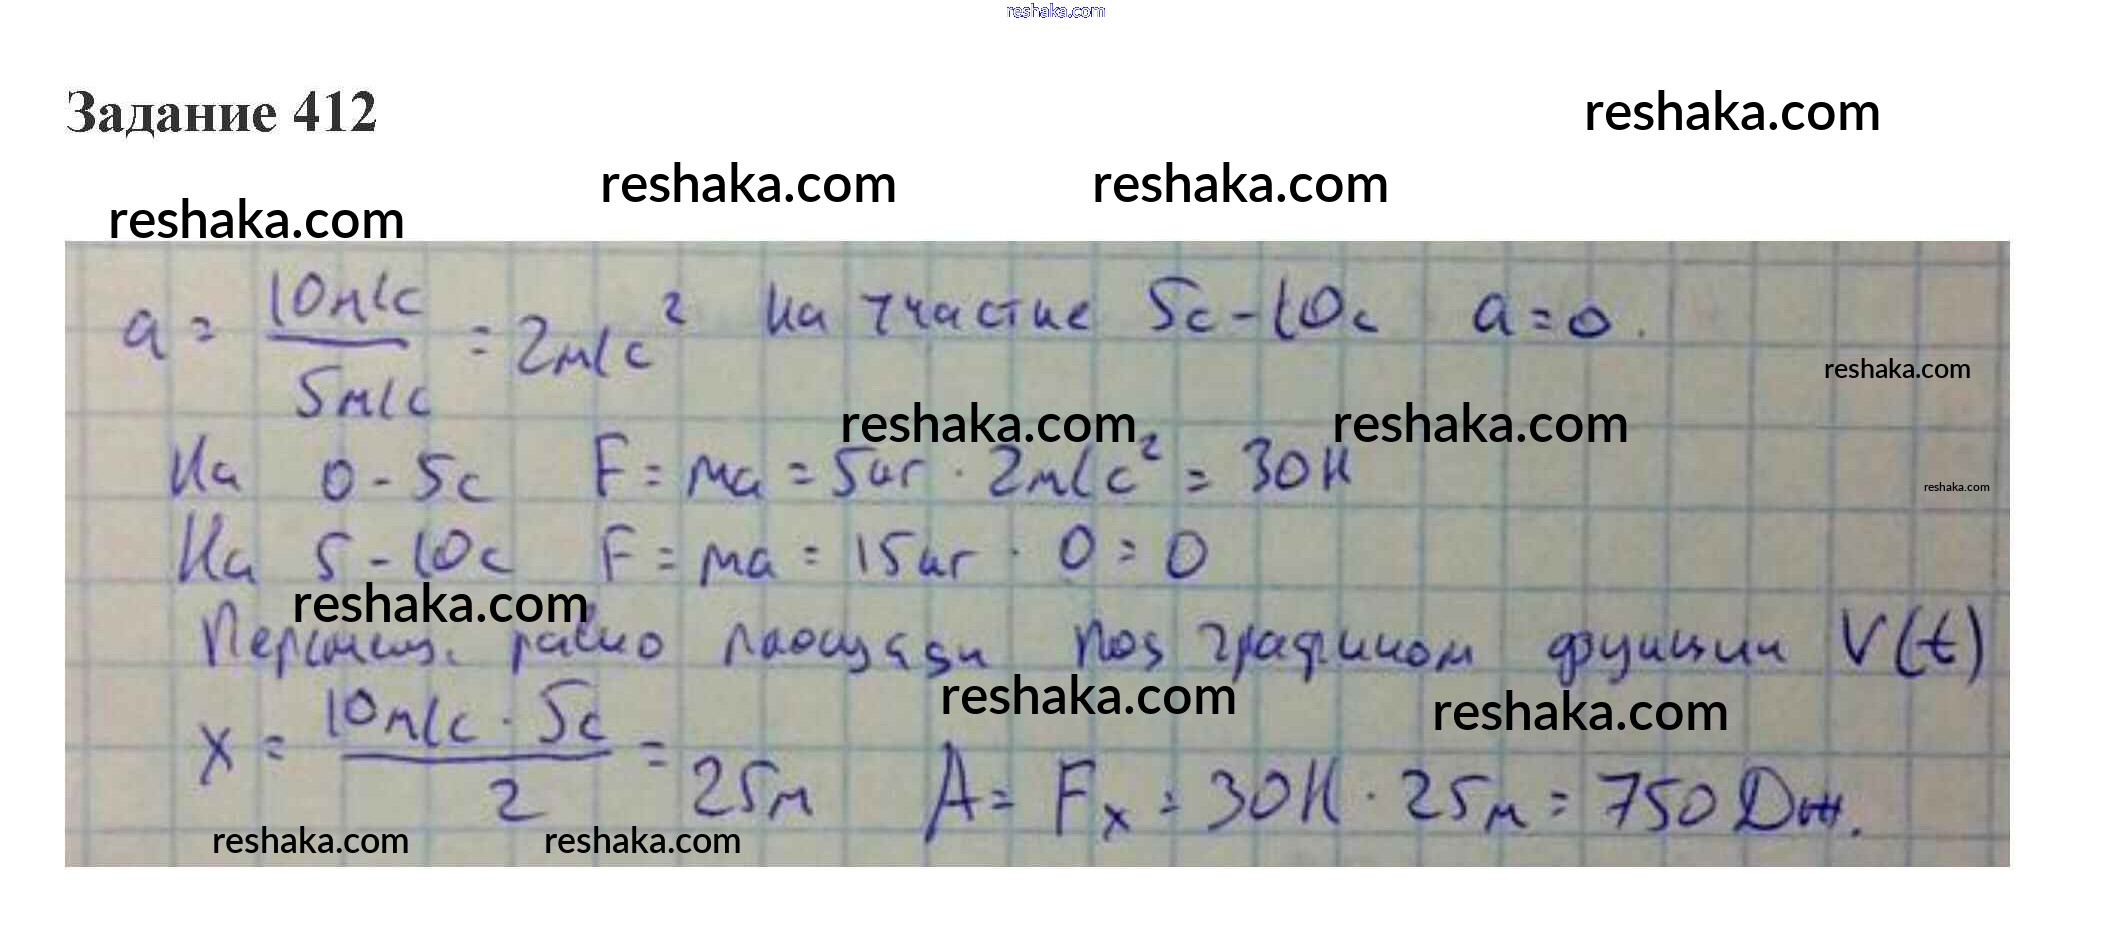 reshaka.com
Задание 412
reshaka.com
reshaka.com reshaka.com
reshaka.com
a = 10м/с / 5м/с = 2м/с² На участке 5с - 10с a = 0.
reshaka.com
reshaka.com reshaka.com
На 0 - 5с F = ma = 5кг · 2м/с² = 30Н
reshaka.com
На 5 - 10с F = ma = 15кг · 0 = 0
reshaka.com
равно площади под графиком функции V(t)
reshaka.com reshaka.com
x = 10м/с · 5с / 2 = 25м A = Fx = 30Н · 25м = 750 Дж.
reshaka.com reshaka.com